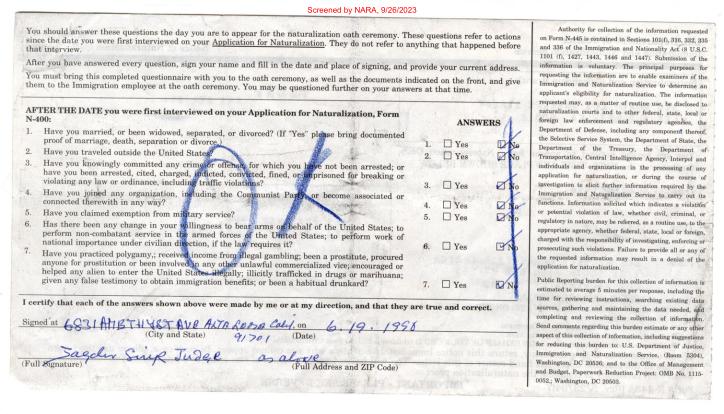 Screened by NARA, 9/26/2023
You should answer these questions the day you are to appear for the naturalization oath ceremony. These questions refer to actions
since the date you were first interviewed on your Application for Naturalization. They do not refer to anything that happened before
that interview.
After you have answered every question, sign your name and fill in the date and place of signing, and provide your current address.
You must bring this completed questionnaire with you to the oath ceremony, as well as the documents indicated on the front, and give
them to the Immigration employee at the oath ceremony. You may be questioned further on your answers at that time.
AFTER THE DATE you were first interviewed on your Application for Naturalization, Form
N-400:
ANSWERS
1. Have you married, or been widowed, separated, or divorced? (If "Yes" please bring documented
proof of marriage, death, separation or divorce.)
1. Yes No
2. Have you traveled outside the United States?
2. Yes No
3. Have you knowingly committed any crime or offense, for which you have not been arrested; or
have you been arrested, cited, charged, indicted, convicted, fined, or imprisoned for breaking or
violating any law or ordinance, including traffic violations?
3. Yes No
4. Have you joined any organization, including the Communist Party, or become associated or
connected therewith in any way?
4. Yes No
5. Have you claimed exemption from military service?
5. Yes No
6. Has there been any change in your willingness to bear arms on behalf of the United States; to
perform non-combatant service in the armed forces of the United States; to perform work of
national importance under civilian direction, if the law requires it?
6. Yes No
7. Have you practiced polygamy; received income from illegal gambling; been a prostitute, procured
anyone for prostitution or been involved in any other unlawful commercialized vice; encouraged or
helped any alien to enter the United States illegally; illicitly trafficked in drugs or marihuana;
given any false testimony to obtain immigration benefits; or been a habitual drunkard?
7. Yes No
OK
I certify that each of the answers shown above were made by me or at my direction, and that they are true and correct.
Signed at 6831 AMETHYST AVE ALTA LOMA Cali, on 6.19.1998
91701
(City and State) (Date)
as above
(Full Signature) (Full Address and ZIP Code)
Authority for collection of the information requested
on Form N-445 is contained in Sections 101(f), 316, 332, 335
and 336 of the Immigration and Nationality Act (8 U.S.C.
1101 (f), 1427, 1443, 1446 and 1447). Submission of the
information is voluntary. The principal purposes for
requesting the information are to enable examiners of the
Immigration and Naturalization Service to determine an
applicant's eligibility for naturalization. The information
requested may, as a matter of routine use, be disclosed to
naturalization courts and to other federal, state, local or
foreign law enforcement and regulatory agencies, the
Department of Defense, including any component thereof,
the Selective Service System, the Department of State, the
Department of the Treasury, the Department of
Transportation, Central Intelligence Agency, Interpol and
individuals and organizations in the processing of any
application for naturalization, or during the course of
investigation to elicit further information required by the
Immigration and Naturalization Service to carry out its
functions. Information solicited which indicates a violation
or potential violation of law, whether civil, criminal, or
regulatory in nature, may be referred, as a routine use, to the
appropriate agency, whether federal, state, local or foreign,
charged with the responsibility of investigating, enforcing or
prosecuting such violations. Failure to provide all or any of
the requested information may result in a denial of the
application for naturalization.
Public Reporting burden for this collection of information is
estimated to average 5 minutes per response, including the
time for reviewing instructions, searching existing data
sources, gathering and maintaining the data needed, and
completing and reviewing the collection of information.
Send comments regarding this burden estimate or any other
aspect of this collection of information, including suggestions
for reducing this burden to: U.S. Department of Justice,
Immigration and Naturalization Service, (Room 5304),
Washington, DC 20536; and to the Office of Management
and Budget, Paperwork Reduction Project: OMB No. 1115-
0052.; Washington, DC 20503.